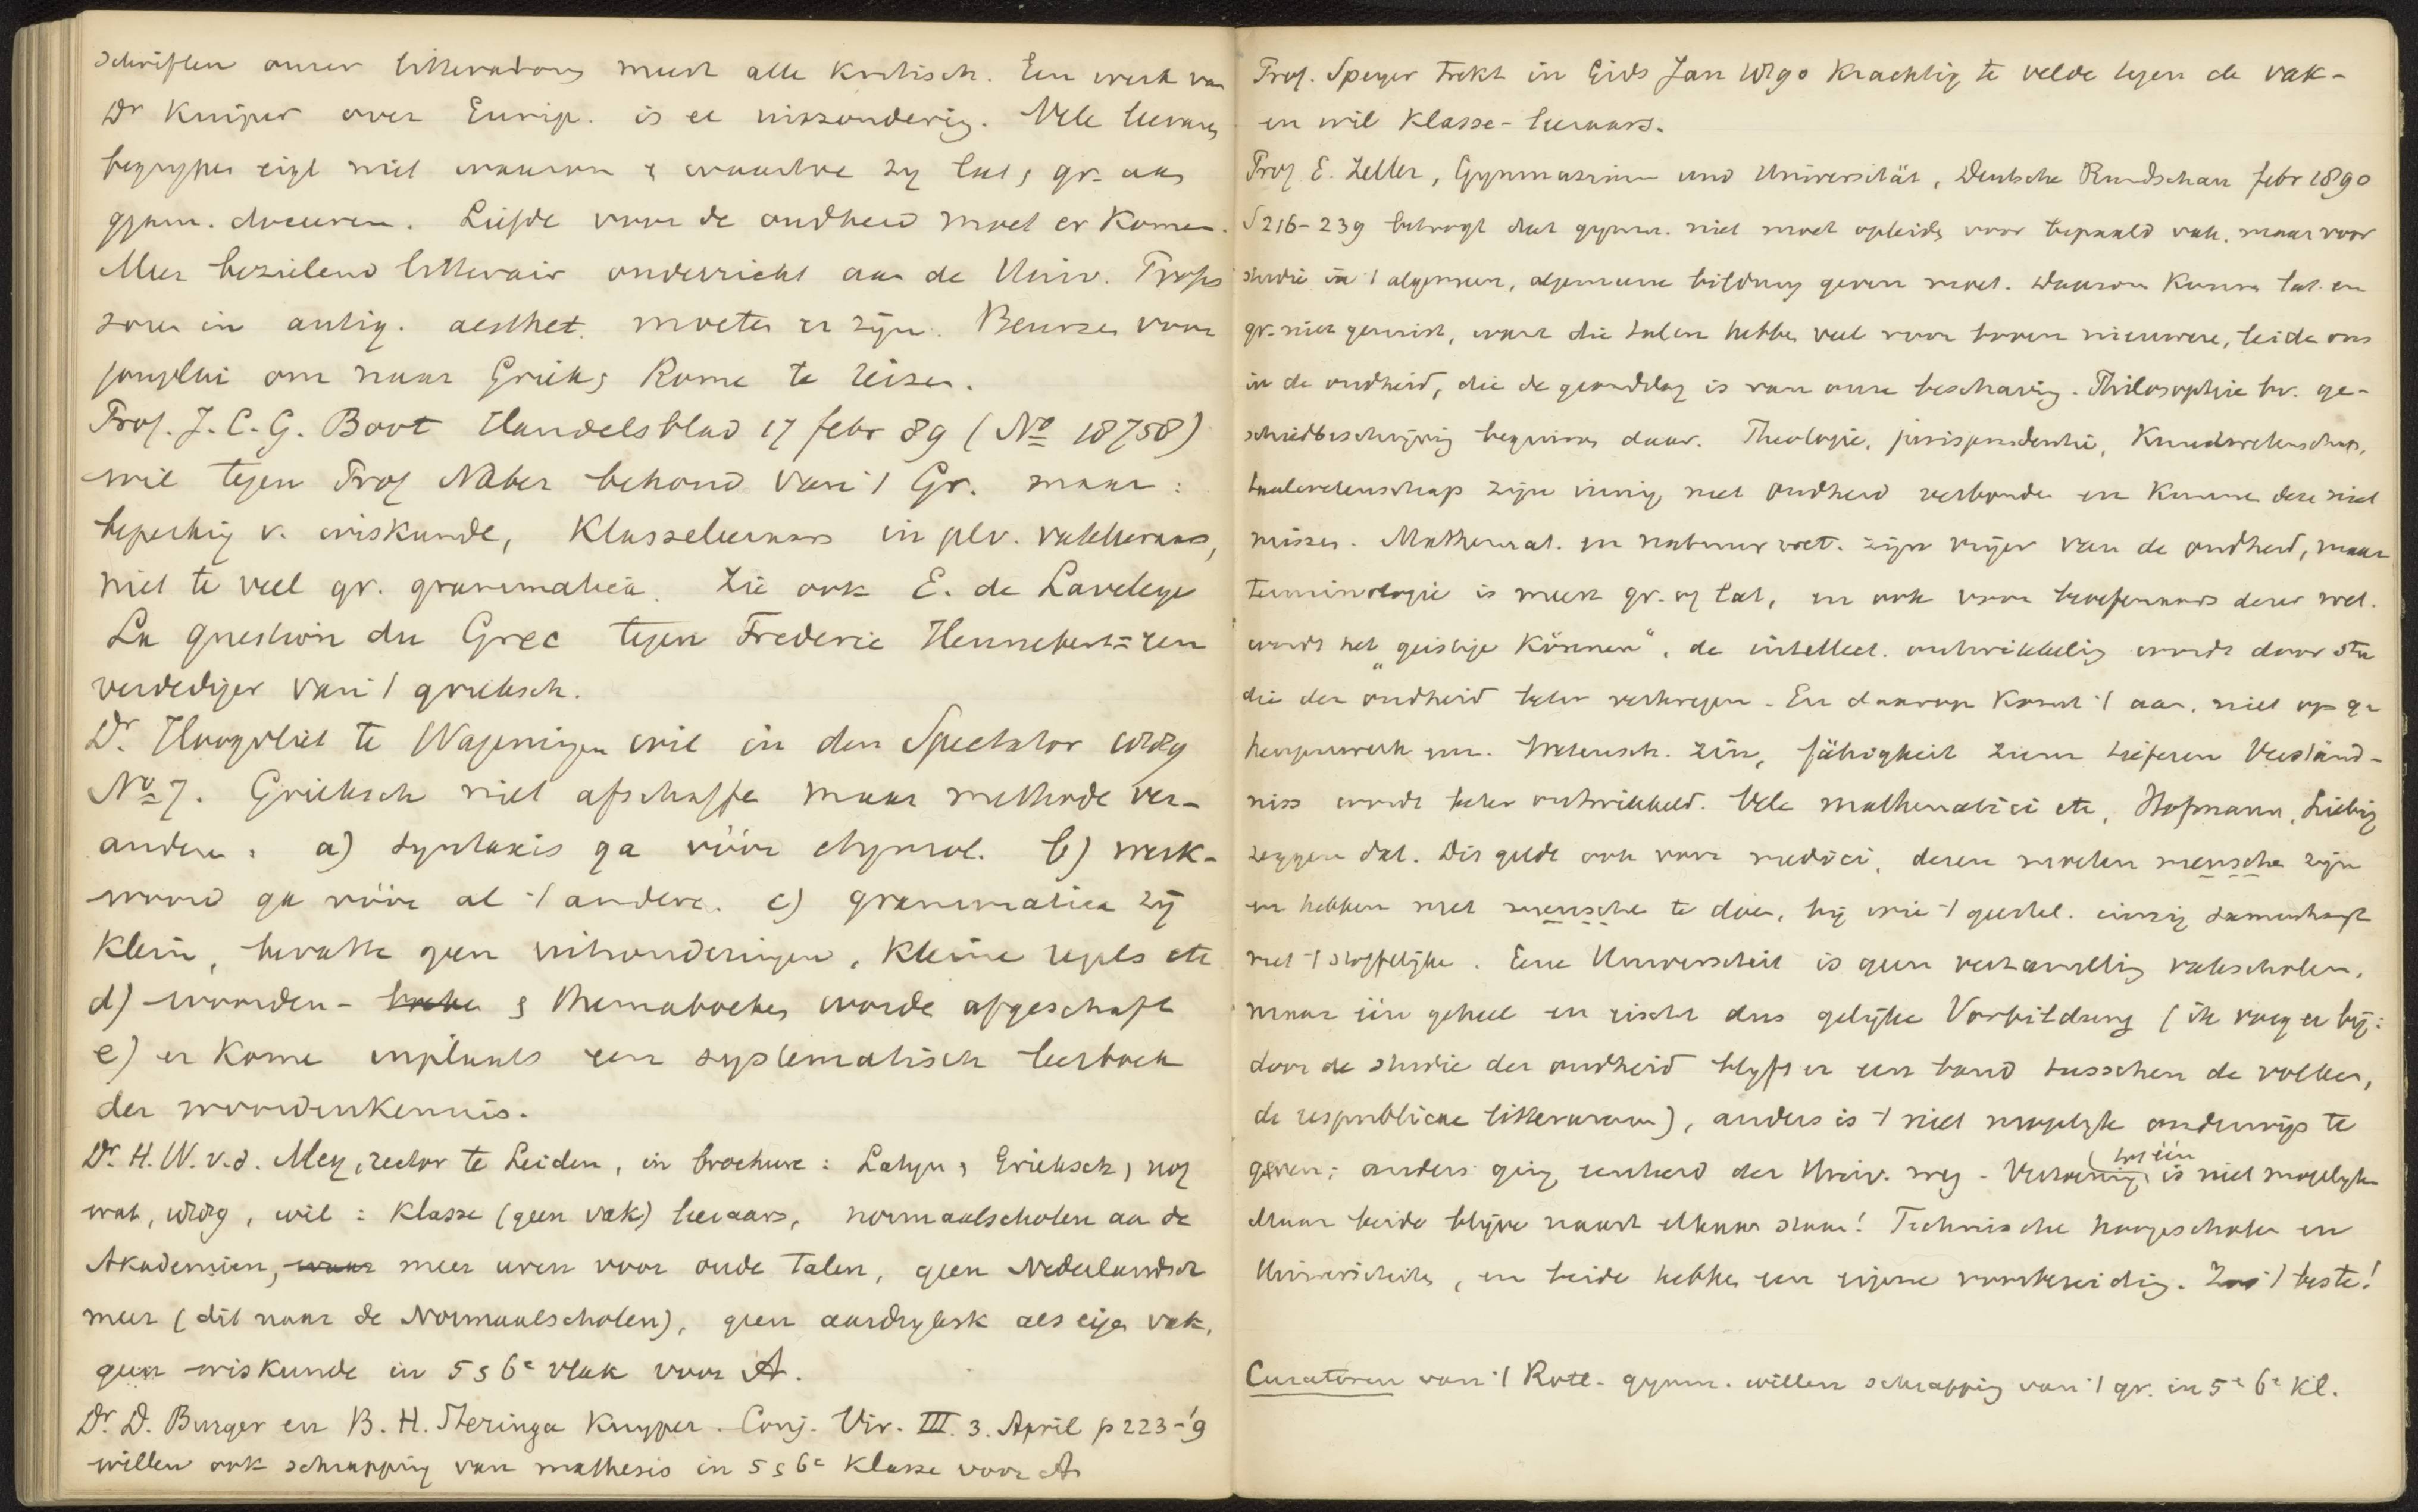 schriften onzer litteratoren meest alle kritisch. Een werk van
Dr Kuiper over Eurip. is ee uitzondering. Vele leeraars
begrypen eigl niet waarom & waartoe zy lat & gr. aan
gymn. doceeren. Liefde voor de oudheid moet er komen.
Meer bezielend litterair onderricht aan de Univ. Profes
soren in antiq. aesthet. moeten er zijn. Beurzen voor
jongelui om naar Griek & Rome te reizen.
Prof. J. C. G. Boot Handelsblad 17 febr 89 (No 18758)
wil tegen Prof Naber behoud van 't Gr. maar:
beperking v. wiskunde, Klasseleeraars in plv. vakleeraars,
niet te veel gr. grammatica. Zie ook E. de Laveleye
La question du Grec tegen Frederic Hennebert = een
verdediger van 't grieksch.
Dr. Hoogvliet te Wageningen wil in den Spectator 1889
No 7. Grieksch niet afschaffe maar methode ver-
andere: a) syntaxis ga vóór etymol. b) werk-
woord ga vóór al 't andere. c) grammatica zij
klein, bevatte geen uitzonderingen, kleine regels etc
d) woorden- & themaboeken worde afgeschaft
e) er kome inplaats een systematisch leerboek
der woordenkennis.
Dr. H. W. v. d. Mey, rector te Leiden, in brochure: Latyn & Grieksch & nog
wat, 1889, wil: Klasse (geen vak) leeraars, normaalscholen aan de
Akademien, meer uren voor oude talen, geen Nederlandsch
meer (dit naar de Normaalscholen), geen aardrijksk als eigen vak,
geen wiskunde in 5 & 6e vlak voor A.
Dr. D. Burger en B. H. Steringa Kuyper. Conj. Vir. III. 3. April p 223-'9
willen ook schrapping van mathesis in 5 & 6e klasse voor A
Prof. Speyer trekt in Gids Jan 1890 krachtig te velde tegen de vak-
en wil Klasse-leeraars.
Prof E. Zeller, Gymnasium und Universität, Deutsche Rundschau febr 1890
S 216-239 betoogt dat gymn. niet moet opleiden voor bepaald vak. maar voor
studie in 't algemeen, algemeene bildung geven moet. Daarom kunnen lat. en
gr. niet gemist, want die talen hebben veel voor boven nieuwere, leide ons
in de oudheid, die de grondslag is van onze beschaving. Philosophie bv. ge-
schiedbeschrijving beginnen daar. Theologie, jurisprudentie, Kunstwetenschap,
taalwetenschap zijn innig met oudheid verbonden en kunnen deze niet
missen. Mathemat. en natuurwet. zijn vrijer van de oudheid, maar
terminologie is meest gr. of lat, en ook voor beoefenaars dezer wet.
wordt het „geistige Können", de intellect. ontwikkeling wordt door stu
die der oudheid beter verkregen. En daarop komt 't aan, niet op ge
heugenwerk enz. Wetensch. zin, fähigkeit zum tieferen Verständ-
niss wordt beter ontwikkeld. Vele mathematici etc, Hofmann, Liebig
zeggen dat. Dit geldt ook voor medici, dezen moeten mensche zijn
en hebben met mensche te doen, bij wie 't geestel. innig samenhangt
met 't stoffelijke. Eene Universiteit is geen verzameling vakscholen,
maar één geheel en eischt dus gelijke Vorbildung (ik voeg er bij:
door de studie der oudheid blyft er een band tusschen de volken,
de respublicae litterarum), anders is 't niet mogelyk onderwijs te
geven; anders ging eenheid der Univ. weg. Vereeniging tot één is niet mogelyk
Maar beide blijve naast elkaar staan! Technische hoogescholen en
Universiteiten, en beide hebben een eigene voorbereiding. Zoo 't beste!
Curatoren van 't Rott. gymn. willen schrapping van 't gr. in 5e 6e Kl.